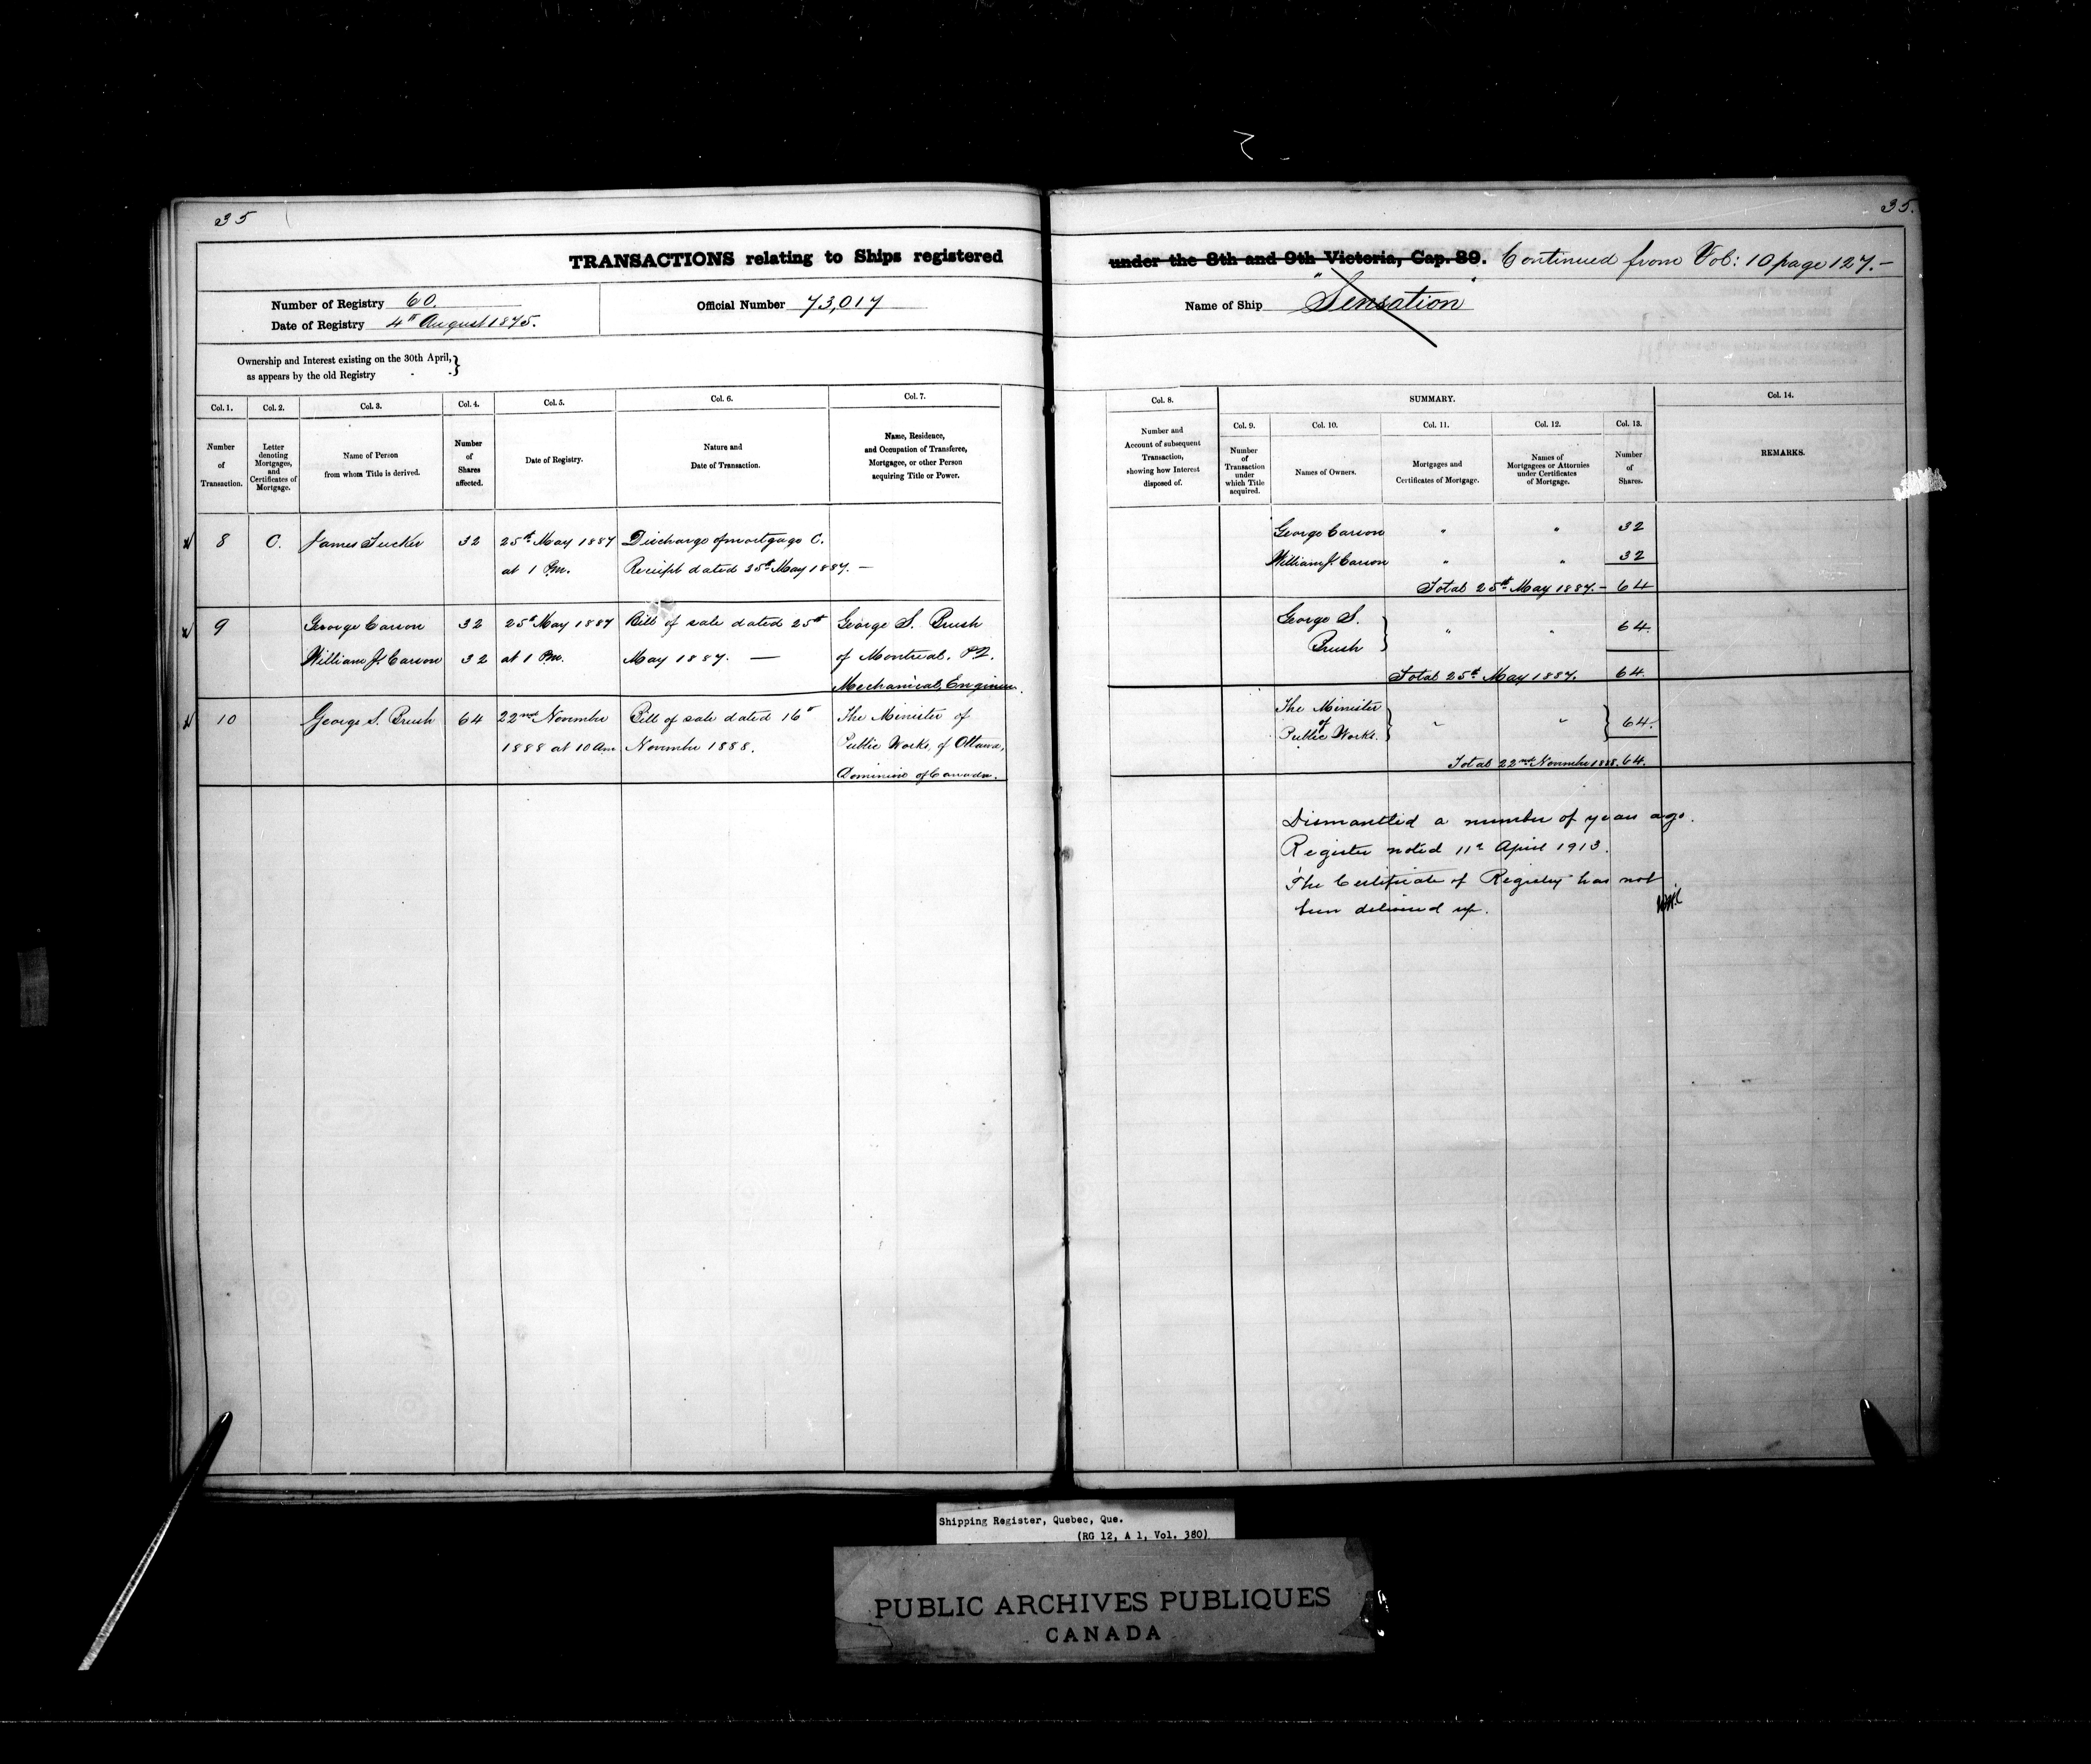 35
35.
TRANSACTIONS relating to Ships registered under the 8th and 9th Victoria, Cap. 89. Continued from Vol: 10 page 127.-
Number of Registry 60.
Date of Registry 4th August 1875.
Official Number 73,017
Name of Ship "Sensation"
Ownership and Interest existing on the 30th April,
as appears by the old Registry
Col. 1.
Number
of
Transaction.
Col. 2.
Letter
denoting
Mortgages,
and
Certificates of
Mortgage.
Col. 3.
Name of Person
from whom Title is derived.
Col. 4.
Number
of
Shares
affected.
Col. 5.
Date of Registry.
Col. 6.
Nature and
Date of Transaction.
Col. 7.
Name, Residence,
and Occupation of Transferee,
Mortgagee, or other Person
acquiring Title or Power.
Col. 8.
Number and
Account of subsequent
Transaction,
showing how Interest
disposed of.
SUMMARY.
Col. 9.
Number
of
Transaction
under
which Title
acquired.
Col. 10.
Names of Owners.
Col. 11.
Mortgages and
Certificates of Mortgage.
Col. 12.
Names of
Mortgagees or Attornies
under Certificates
of Mortgage.
Col. 13.
Number
of
Shares.
Col. 14.
REMARKS.
8 C. James Tucker 32 25th May 1887 Discharge of mortgage C.
at 1 Pm. Receipt dated 25th May 1887. —
George Carson " " 32
William J. Carson " " 32
Total 25th May 1887.- 64
9 George Carson 32 25th May 1887 Bill of sale dated 25th George S. Brush
William J. Carson 32 at 1 Pm. May 1887. — of Montreal, P2.
Mechanical Engineer.
George S. " " 64
Brush
Total 25th May 1887. 64
10 George S. Brush 64 22nd November Bill of sale dated 16th The Minister of
1888 at 10 Am. November 1888. Public Works, of Ottawa,
Dominion of Canada.
The Minister
of " " 64.
Public Works.
Total 22nd November 1888. 64.
Dismantled a number of years ago.
Register noted 11th April 1913.
The Certificate of Registry has not
been delivered up.
Shipping Register, Quebec, Que.
(RG 12, A 1, Vol. 380)
PUBLIC ARCHIVES PUBLIQUES
CANADA